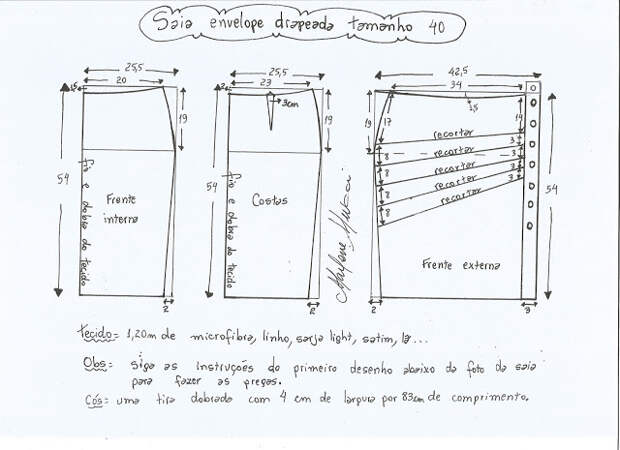 Saia envelope drapeada tamanho 40
25,5
20
1,5
54
19
fio e dobra do tecido
Frente
interna
2
25,5
23
2
3cm
54
19
fio e dobra do tecido
Costas
2
Marlene Mukai
42,5
34
1,5
19
17
14
recortar
3
8
recortar
3
8
recortar
3
8
recortar
3
8
recortar
54
Frente externa
2
3
Tecido= 1,20m de microfibra, linho, sarja light, satim, lã...
Obs= siga as instruções do primeiro desenho abaixo da foto da saia
para fazer as pregas.
Cós= uma tira dobrada com 4 cm de largura por 83cm de comprimento.